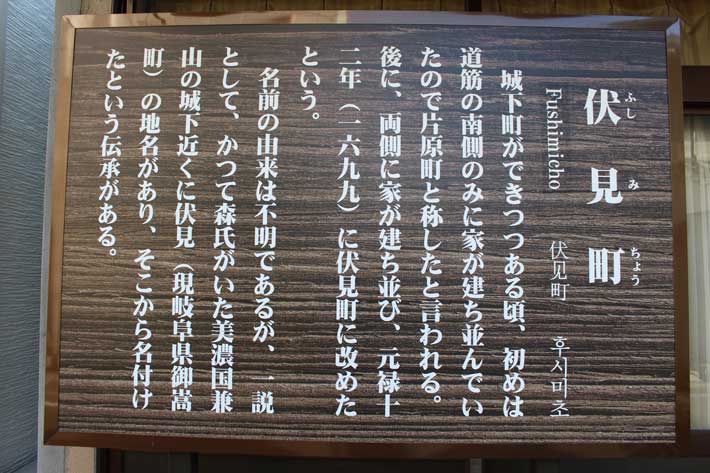 伏見町
ふし み ちょう
Fushimicho 伏见町 후시미초
城下町ができつつある頃、初めは
道筋の南側のみに家が建ち並んでい
たので片原町と称したと言われる。
後に、両側に家が建ち並び、元禄十
二年（一六九九）に伏見町に改めた
という。
名前の由来は不明であるが、一説
として、かつて森氏がいた美濃国兼
山の城下近くに伏見（現岐阜県御嵩
町）の地名があり、そこから名付け
たという伝承がある。